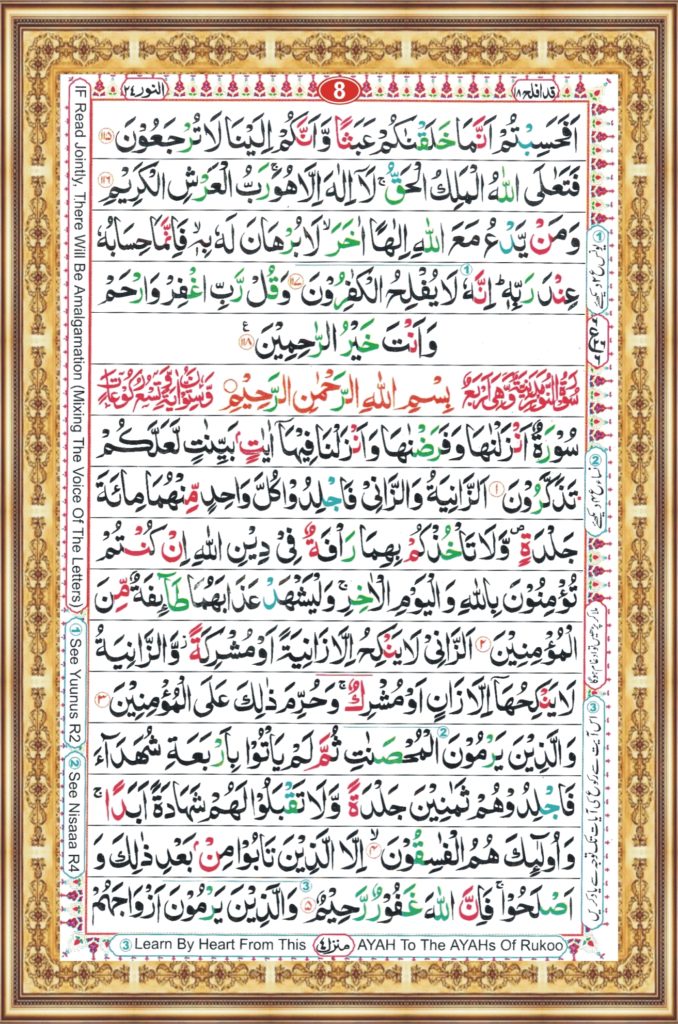 قد افلح ١٨
8
النور ٢٤
اَفَحَسِبْتُمْ اَنَّمَا خَلَقْنٰكُمْ عَبَثًا وَّاَنَّكُمْ اِلَيْنَا لَا تُرْجَعُوْنَ ١١٥
فَتَعٰلَى اللّٰهُ الْمَلِكُ الْحَقُّ ۚ لَاۤ اِلٰهَ اِلَّا هُوَ ۚ رَبُّ الْعَرْشِ الْكَرِيْمِ ١١٦
وَمَنْ يَّدْعُ مَعَ اللّٰهِ اِلٰهًا اٰخَرَ ۙ لَا بُرْهَانَ لَهٗ بِهٖ ۙ فَاِنَّمَا حِسَابُهٗ
عِنْدَ رَبِّهٖ ؕ اِنَّهٗ لَا يُفْلِحُ الْكٰفِرُوْنَ ١١٧ وَقُلْ رَّبِّ اغْفِرْ وَارْحَمْ
وَاَنْتَ خَيْرُ الرّٰحِمِيْنَ ١١٨ ع
سُوْرَةُ النُّوْرِ مَدَنِيَّةٌ وَّهِيَ اَرْبَعٌ بِسْمِ اللّٰهِ الرَّحْمٰنِ الرَّحِيْمِ وَّسِتُّوْنَ اٰيَةً وَّتِسْعُ رُكُوْعَاتٍ
سُوْرَةٌ اَنْزَلْنٰهَا وَفَرَضْنٰهَا وَاَنْزَلْنَا فِيْهَاۤ اٰيٰتٍۭ بَيِّنٰتٍ لَّعَلَّكُمْ
تَذَكَّرُوْنَ ١ اَلزَّانِيَةُ وَالزَّانِيْ فَاجْلِدُوْا كُلَّ وَاحِدٍ مِّنْهُمَا مِائَةَ
جَلْدَةٍ ۪ وَّلَا تَاْخُذْكُمْ بِهِمَا رَاْفَةٌ فِيْ دِيْنِ اللّٰهِ اِنْ كُنْتُمْ
تُؤْمِنُوْنَ بِاللّٰهِ وَالْيَوْمِ الْاٰخِرِ ۚ وَلْيَشْهَدْ عَذَابَهُمَا طَآئِفَةٌ مِّنَ
الْمُؤْمِنِيْنَ ٢ اَلزَّانِيْ لَا يَنْكِحُ اِلَّا زَانِيَةً اَوْ مُشْرِكَةً ۫ وَّالزَّانِيَةُ
لَا يَنْكِحُهَاۤ اِلَّا زَانٍ اَوْ مُشْرِكٌ ۚ وَحُرِّمَ ذٰلِكَ عَلَى الْمُؤْمِنِيْنَ ٣
وَالَّذِيْنَ يَرْمُوْنَ الْمُحْصَنٰتِ ثُمَّ لَمْ يَاْتُوْا بِاَرْبَعَةِ شُهَدَآءَ
فَاجْلِدُوْهُمْ ثَمٰنِيْنَ جَلْدَةً وَّلَا تَقْبَلُوْا لَهُمْ شَهَادَةً اَبَدًا ۚ
وَاُولٰٓئِكَ هُمُ الْفٰسِقُوْنَ ٤ اِلَّا الَّذِيْنَ تَابُوْا مِنْۢ بَعْدِ ذٰلِكَ وَ
اَصْلَحُوْا ۚ فَاِنَّ اللّٰهَ غَفُوْرٌ رَّحِيْمٌ ٥ وَالَّذِيْنَ يَرْمُوْنَ اَزْوَاجَهُمْ
IF Read Jointly, There Will Be Amalgamation (Mixing The Voice Of The Letters)
1 See Yuunus R2
2 See Nisaaa R4
3 Learn By Heart From This منزل ٤ AYAH To The AYAHs Of Rukoo